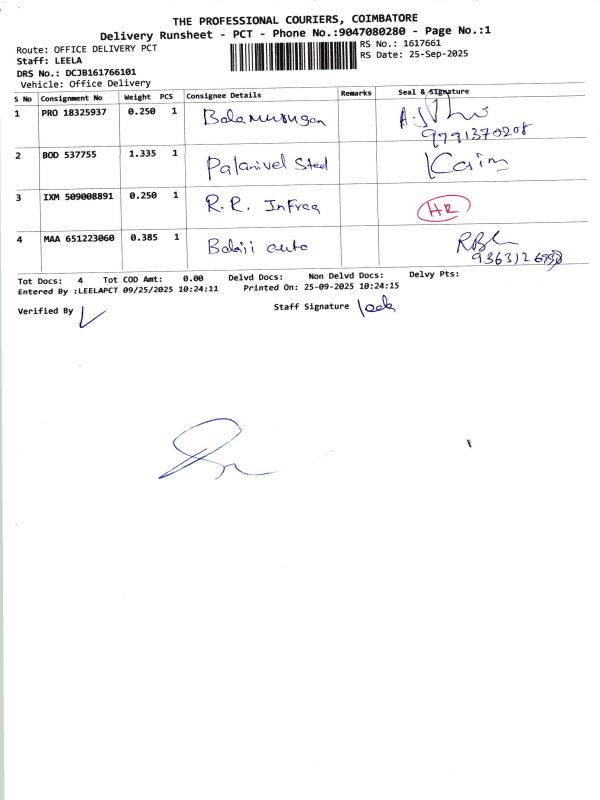 THE PROFESSIONAL COURIERS, COIMBATORE
Delivery Runsheet - PCT - Phone No.:9047080280 - Page No.:1
Route: OFFICE DELIVERY PCT
Staff: LEELA
DRS No.: DCJB161766101
Vehicle: Office Delivery
RS No.: 1617661
RS Date: 25-Sep-2025
S No Consignment No Weight PCS Consignee Details Remarks Seal & Signature
1 PRO 18325937 0.250 1 Balamurugan
9791370208
2 BOD 537755 1.335 1 Palanivel Steel Kasim
3 IXM 509008891 0.250 1 R.R. Infraa HR
4 MAA 651223060 0.385 1 Balaji auto
Tot Docs: 4 Tot COD Amt: 0.00 Delvd Docs: Non Delvd Docs: Delvy Pts:
Entered By :LEELAPCT 09/25/2025 10:24:11 Printed On: 25-09-2025 10:24:15
Verified By
Staff Signature